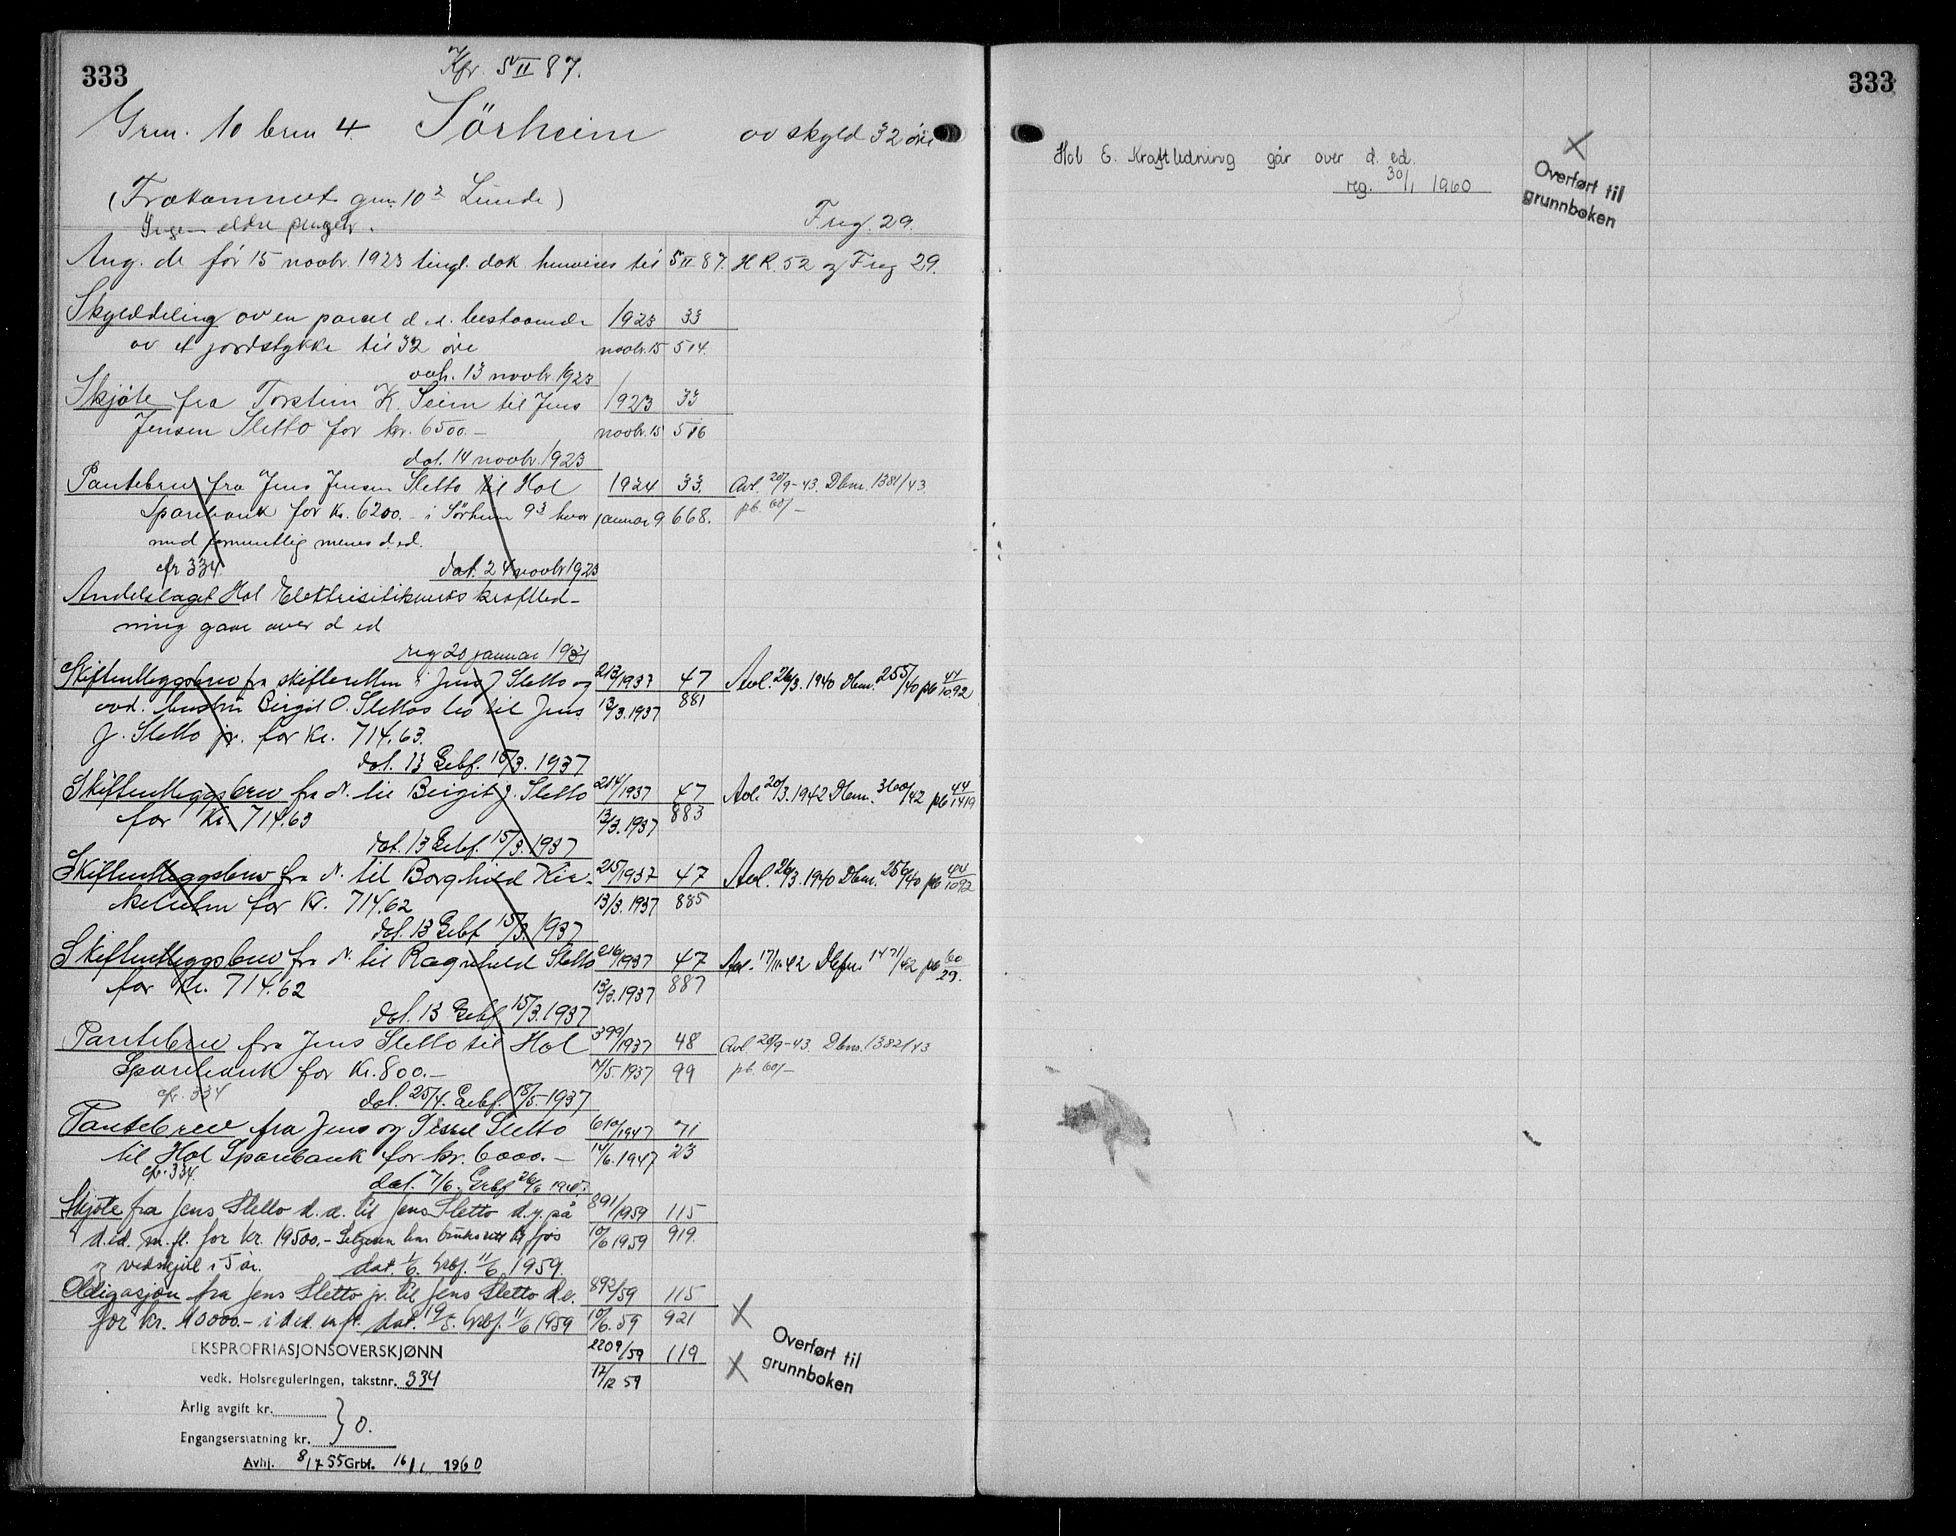 333
Kfr. 5 II 87.
Grm. 10 brm 4 Sörheim av skyld 32 öre
(Frakommet gm. 10² Lunde)
Ingen eldre
Freg. 29.
Ang. de før 15 novbr. 1923 tingl. dok. henvises til 5 II 87. H R. 52 og Freg 29.
Skylddeling av en parcel d. ed. bestaaende 1923 33
av et jordstykke til 32 øre novbr. 15 514.
avh. 13 novbr 1923
Skjöte fra Torstein K. Seim til Jens 1923 33
Jensen Sletto for kr. 6500.- novbr. 15 516
dat. 14 novbr. 1923
Pantebrev fra Jens Jensen Sletto til Hol 1924 33. Avl. 20/9-43. Dbnr. 1381/43.
Sparebank for kr. 6200.- i Sörheim 9³ hvor januar 9 668. pb. 60/-
med formentlig menes d. ed.
cfr 334. dat. 24 novbr 1923
Andelslaget Hol Elektrisitetsverks kraftled-
ning gaar over d ed
reg 20 januar 1931
Skifteutleggsbrev fra skifteretten i Jens J Sletto og 213/1937 47 Avl. 26/3. 1940 Dbnr. 255/40 pb 44/1092
avd. hustru Birgit O. Slettos bo til Jens 13/3. 1937 881
J. Sletto jr. for kr. 714.63.
dat. 13 Grbf. 15/3. 1937
Skifteutleggsbrev fra do. til Birgit J. Sletto 214/1937 47 Avl. 20/3. 1942 Dbnr. 360/42 pb 44/1419
for kr. 714.63 13/3. 1937 883
dat. 13 Grbf. 15/3. 1937
Skifteutleggsbrev fra do. til Borghild Kir- 215/1937 47 Avl. 26/3. 1940 Dbnr. 256/40 pb 44/1092
for kr. 714.62 13/3. 1937 885
dat. 13 Grbf 15/3. 1937
Skifteutleggsbrev fra do. til Ragnhild Sletto 216/1937 47 Avl. 17/11-42 Dbnr. 1471/42 pb 60/29.
for kr. 714.62 13/3. 1937 887
dat. 13 Grbf. 15/3. 1937
Pantebrev fra Jens Sletto til Hol 399/1937 48 Avl 20/9-43. Dbnr. 1382/43
Sparebank for kr. 800.- 7/5. 1937 99 pb. 60/-
cfr. 334 dat. 25/4. Grbf. 18/5. 1937
Pantebrev fra Jens og Sissel Sletto 610/1947 71
til Hol Sparebank for kr. 6000.- 14/6. 1947 23
cfr. 334. dat. 7/6. Grbf 26/6 1947.
Skjøte fra Jens Sletto d. e. til Jens Sletto d.y. på 891/1959 115
d.ed. m.fl. for kr. 19500.- Selgeren har bruksrett til fjøs 10/6 1959 919.
og vedskjul i 5 år. dat. 1/6. Grbf. 11/6 1959.
Obligasjon fra Jens Sletto jr. til Jens Sletto d.e. 892/59 115
for kr. 10000.- i d.ed. m.fl. dat. 19/5. Grbf. 11/6 1959 10/6. 59 921 X
EKSPROPRIASJONSOVERSKJØNN 2209/59 119 X Overført til
vedk. Holsreguleringen, takstnr. 334 17/12 59 grunnboken
Årlig avgift kr. } 0.
Engangserstatning kr.
Avhj. 8/7 55 Grbf. 16/1 1960
333
Hol E. Kraftledning går over d. ed. X
reg. 30/1 1960 Overført til
grunnboken